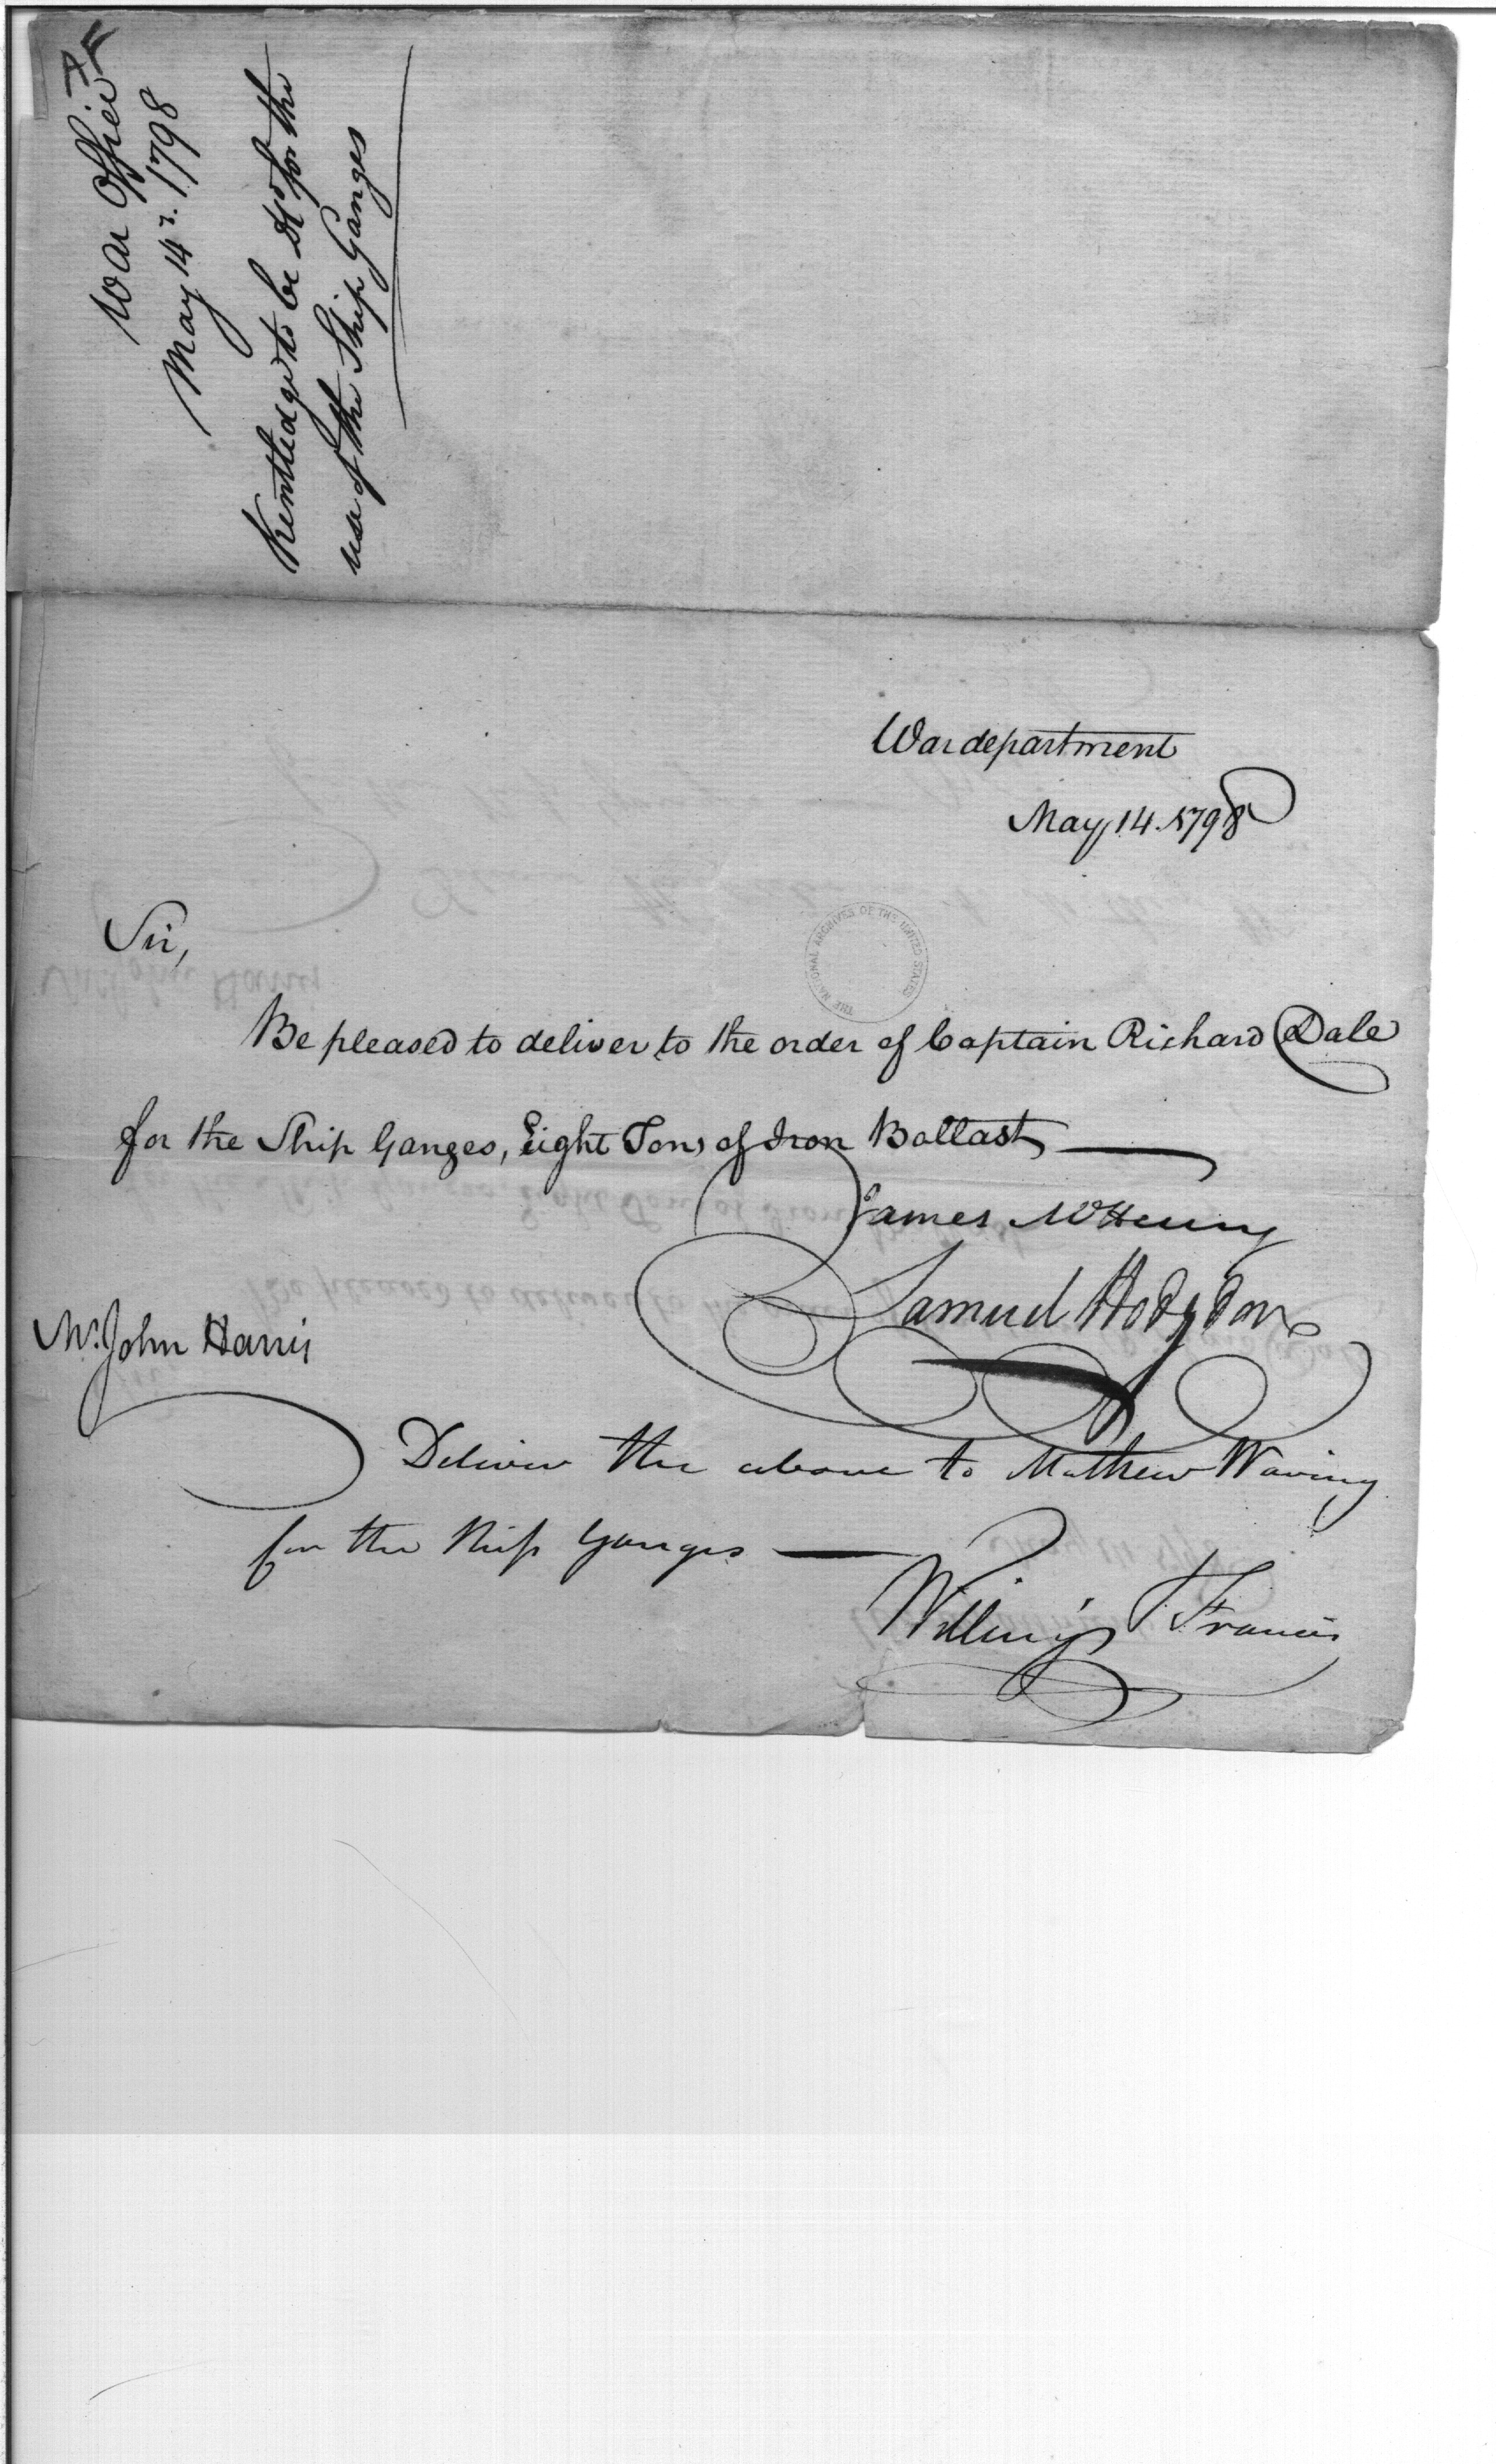 War Office
May 14th. 1798
Kentledge to be dd for the
use of the Ship Ganges
War department
May 14. 1798
THE NATIONAL ARCHIVES OF THE UNITED STATES
Sir,
Be pleased to deliver to the order of Captain Richard Dale
for the Ship Ganges, Eight Tons of Iron Ballast
James McHenry
Samuel Hodgdon
Mr. John Harris
Deliver the above to Mathew Waring
for the Ship Ganges
Willings Francis